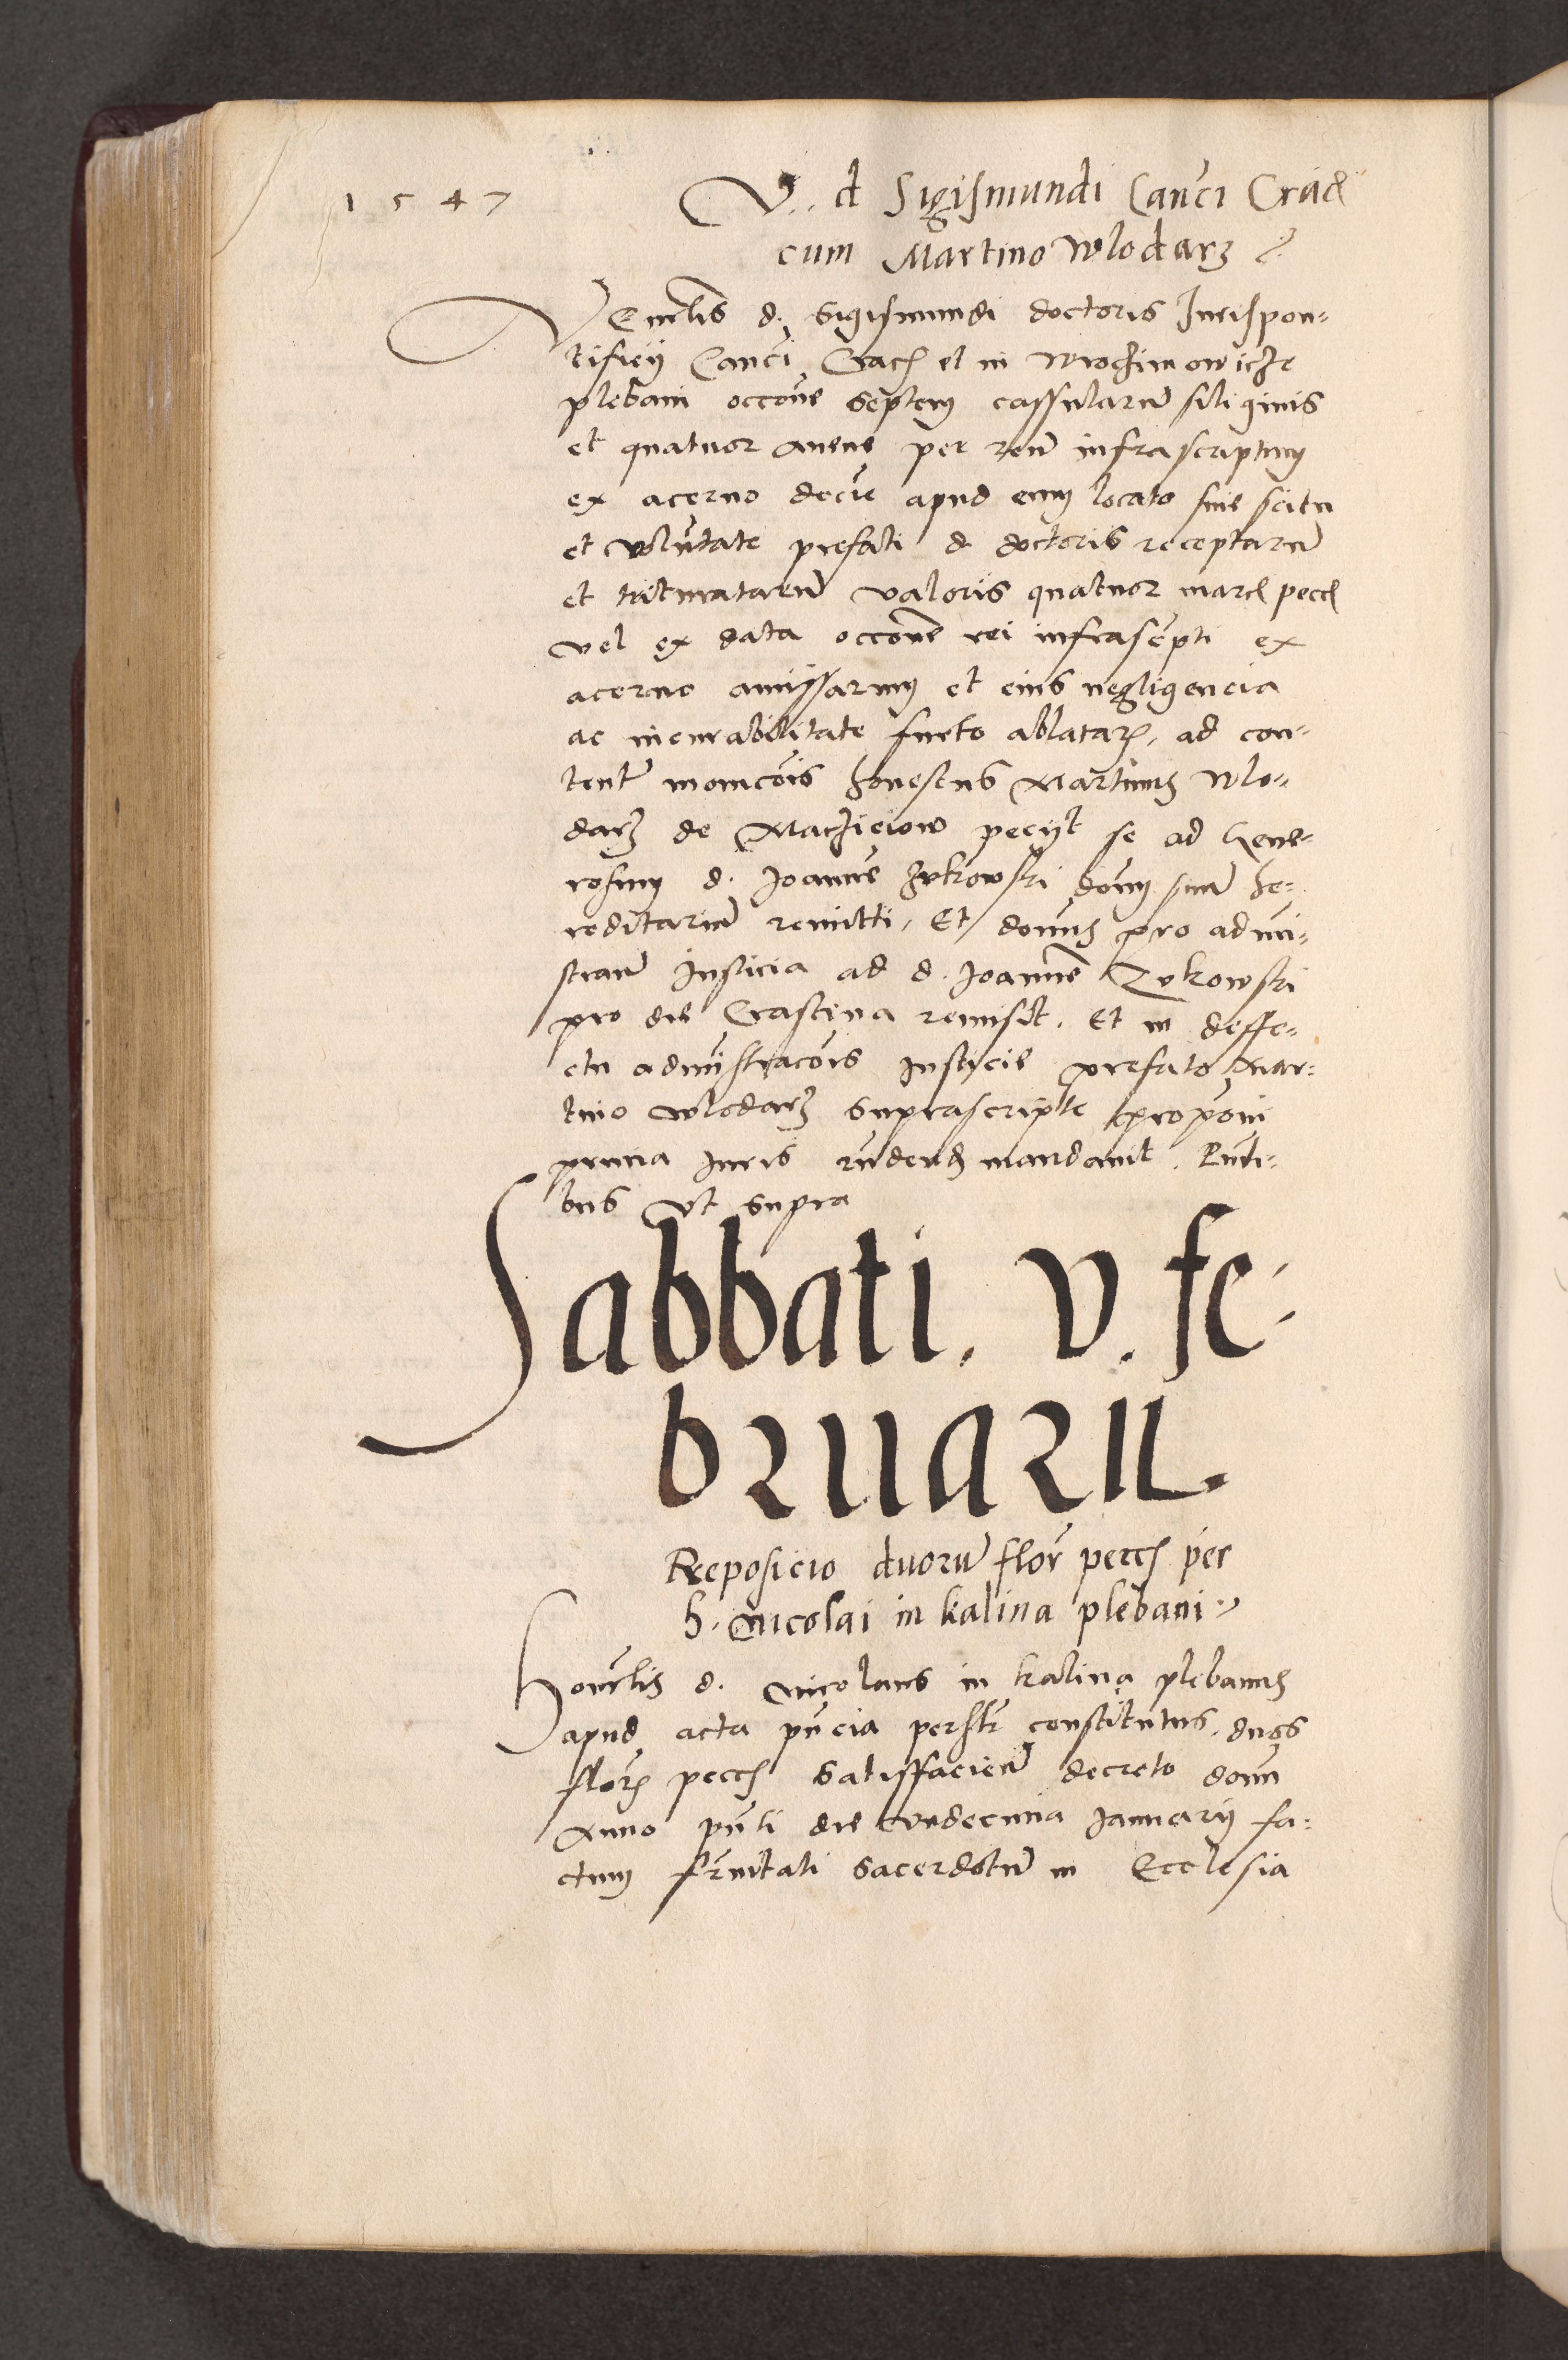 1547
V. d Sigismundi Canci Crac
cum Martino Wlodarz
Venerlis d. Sigismundi doctoris Jurispon-
tificij Canci Crac et in Wrocimowicze
plebani occone septem cassularum siliginis
et quatuor avene per reum infrascriptum
ex acervo decie apud eum locato sine scitu
et voluntate prefati d doctoris receptarum
et trituratarum valoris quatuor marc pecc
vel ex data occone rei infrascripti ex
acervo amissarum et eius negligencia
ac incurabilitate furto ablatarum, ad con-
tentum monicois honestus Martinus Wlo-
darz de Macieiow peciit se ad Gene-
rosum d. Joannem Zukowski domum suum he-
reditarium remitti, Et domnus pro admi-
stranda Justicia ad d. Joannem Zukowski
pro die Crastina remisit. Et in deffe-
ctu admistracois Justicie prefato Mar-
tino Wlodarz suprascripte proponi
prima Juris mandavit. Pnti-
bus ut supra
Sabbati. v. fe-
bruarii.
Reposicio duorum flor pecc per
h. Nicolai in kalina plebani
Honorlis d. Nicolaus in kalina plebanus
apud acta pncia personlr constitutus. duos
flor pecc satisfaciendo decreto domni
Anno pnti die undecima Januarij fa-
ctum frnitati sacerdotum in Ecclesia